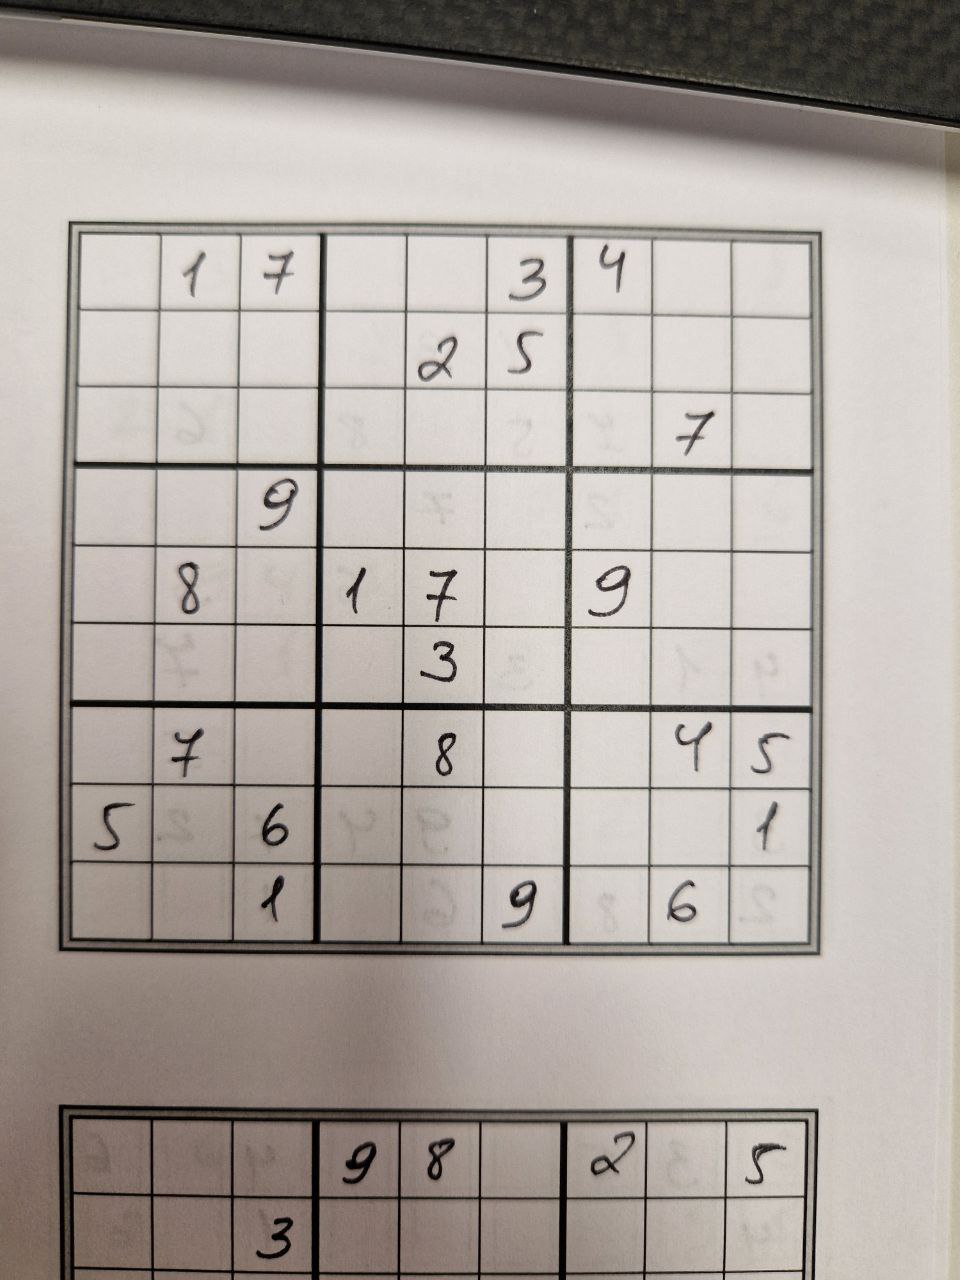 1 7 3 4
2 5
7
9
8 1 7 9
3
7 8 4 5
5 6 1
1 9 6
9 8 2 5
3